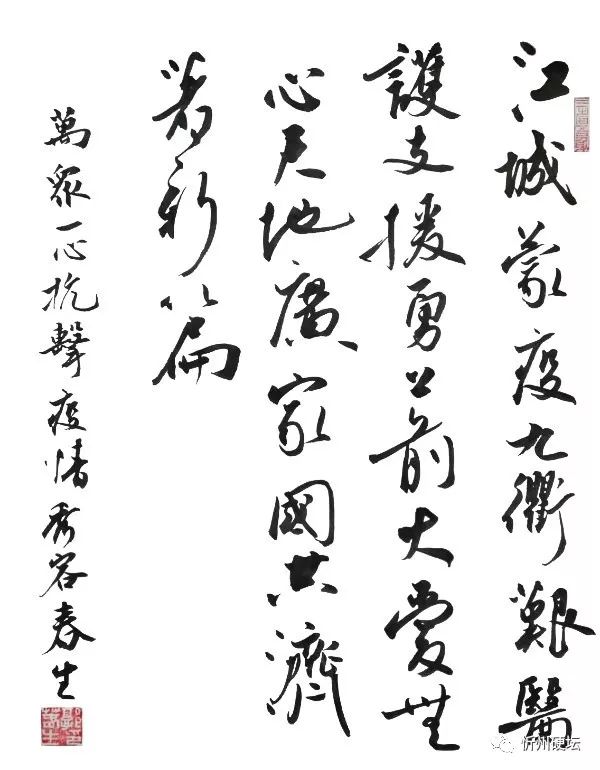 江城蒙疫九衢艱醫
護支援勇上前大愛無
心天地廣家國共濟
著新篇
萬眾一心抗擊疫情秀容春生
忻州硬坛